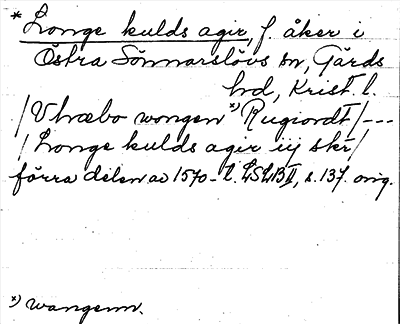 * Longe kulds agir, f. åker i
Östra Sönnarslövs sn, Gärds
hd, Krist. l.
/Vhræbo wongen *) Rugiordt/---
/Longe kulds agir iij skr/
förra delen av 1570-t. LSLB II, s. 137. orig.
*) wangenn.